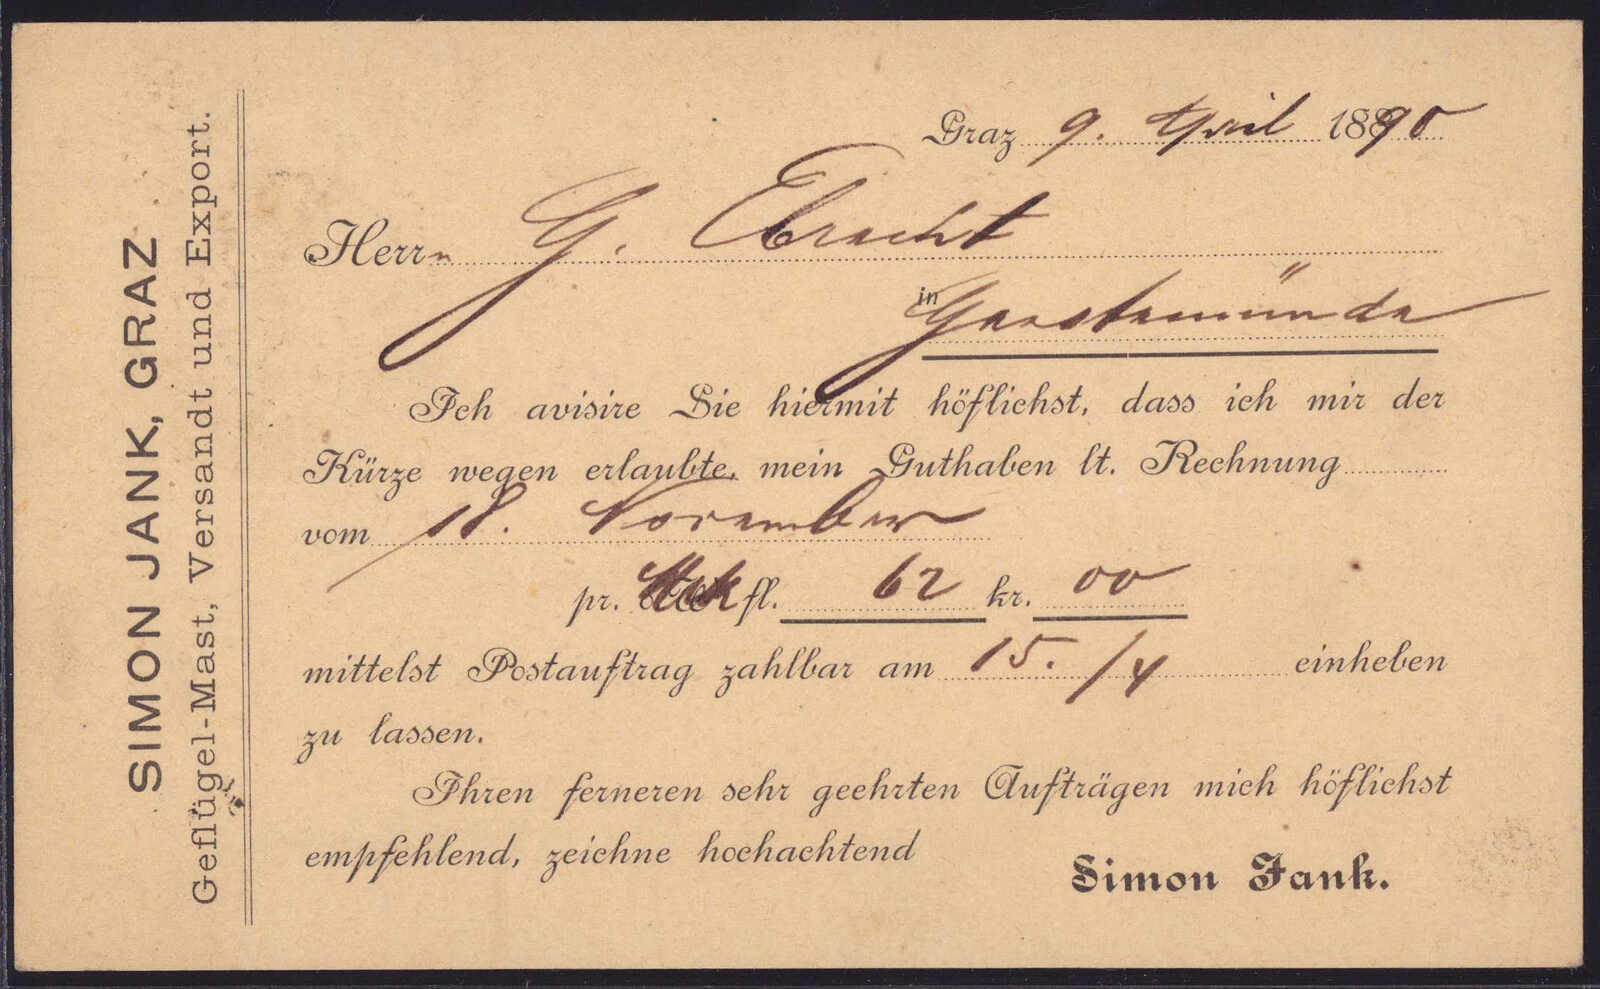 SIMON JANK, GRAZ
Geflügel-Mast, Versandt und Export.
Graz 9. April 1890
Herrn G. Ebracht
in Geestemünde
Ich avisire Sie hiermit höflichst, dass ich mir der
Kürze wegen erlaubte, mein Guthaben lt. Rechnung
vom 18. November
pr. Mk fl. 62 kr. 00
mittelst Postauftrag zahlbar am 15./4 einheben
zu lassen.
Ihren ferneren sehr geehrten Aufträgen mich höflichst
empfehlend, zeichne hochachtend
Simon Jank.